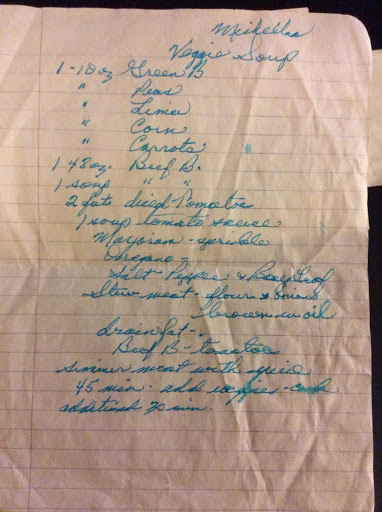 Michella's
Veggie Soup
1-10 oz Green B
" Peas
" Lima
" Corn
" Carrots
1 48 oz. Beef B.
1 soup " "
2 diced Tomatoes
1 soup tomato sauce
Marjoram - sprinkle
Oregano -
Salt - Pepper & Bay Leaf
Stew meat - flour & onions
brown in oil
drain fat -
Beef B - tomatoe
simmer meat with spice
45 min. add - cook
additional 20 min.